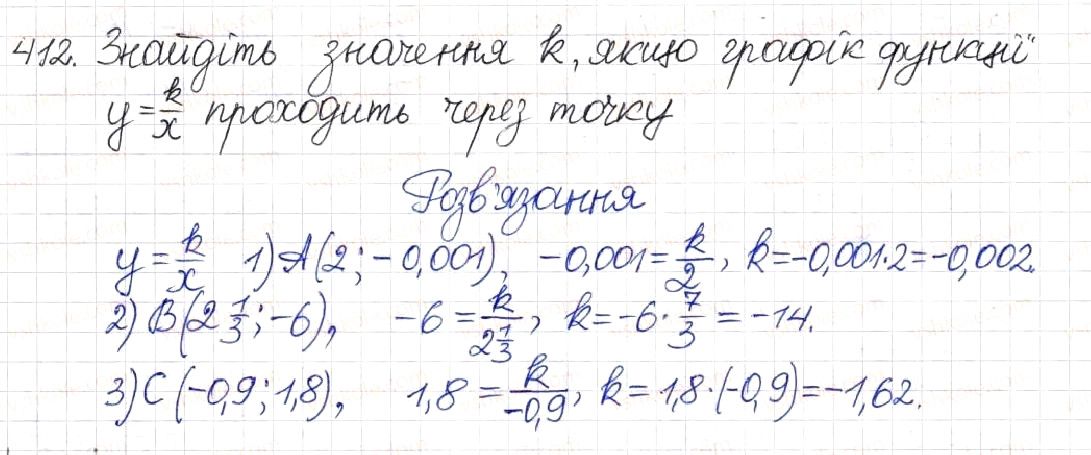 412. Знайдіть значення k, якщо графік функції
y = k/x проходить через точку
Розв'язання
y = k/x 1) A(2; -0,001), -0,001 = k/2, k = -0,001·2 = -0,002.
2) B(2 1/3; -6), -6 = k/(2 1/3), k = -6 · 7/3 = -14.
3) C(-0,9; 1,8), 1,8 = k/-0,9, k = 1,8·(-0,9) = -1,62.